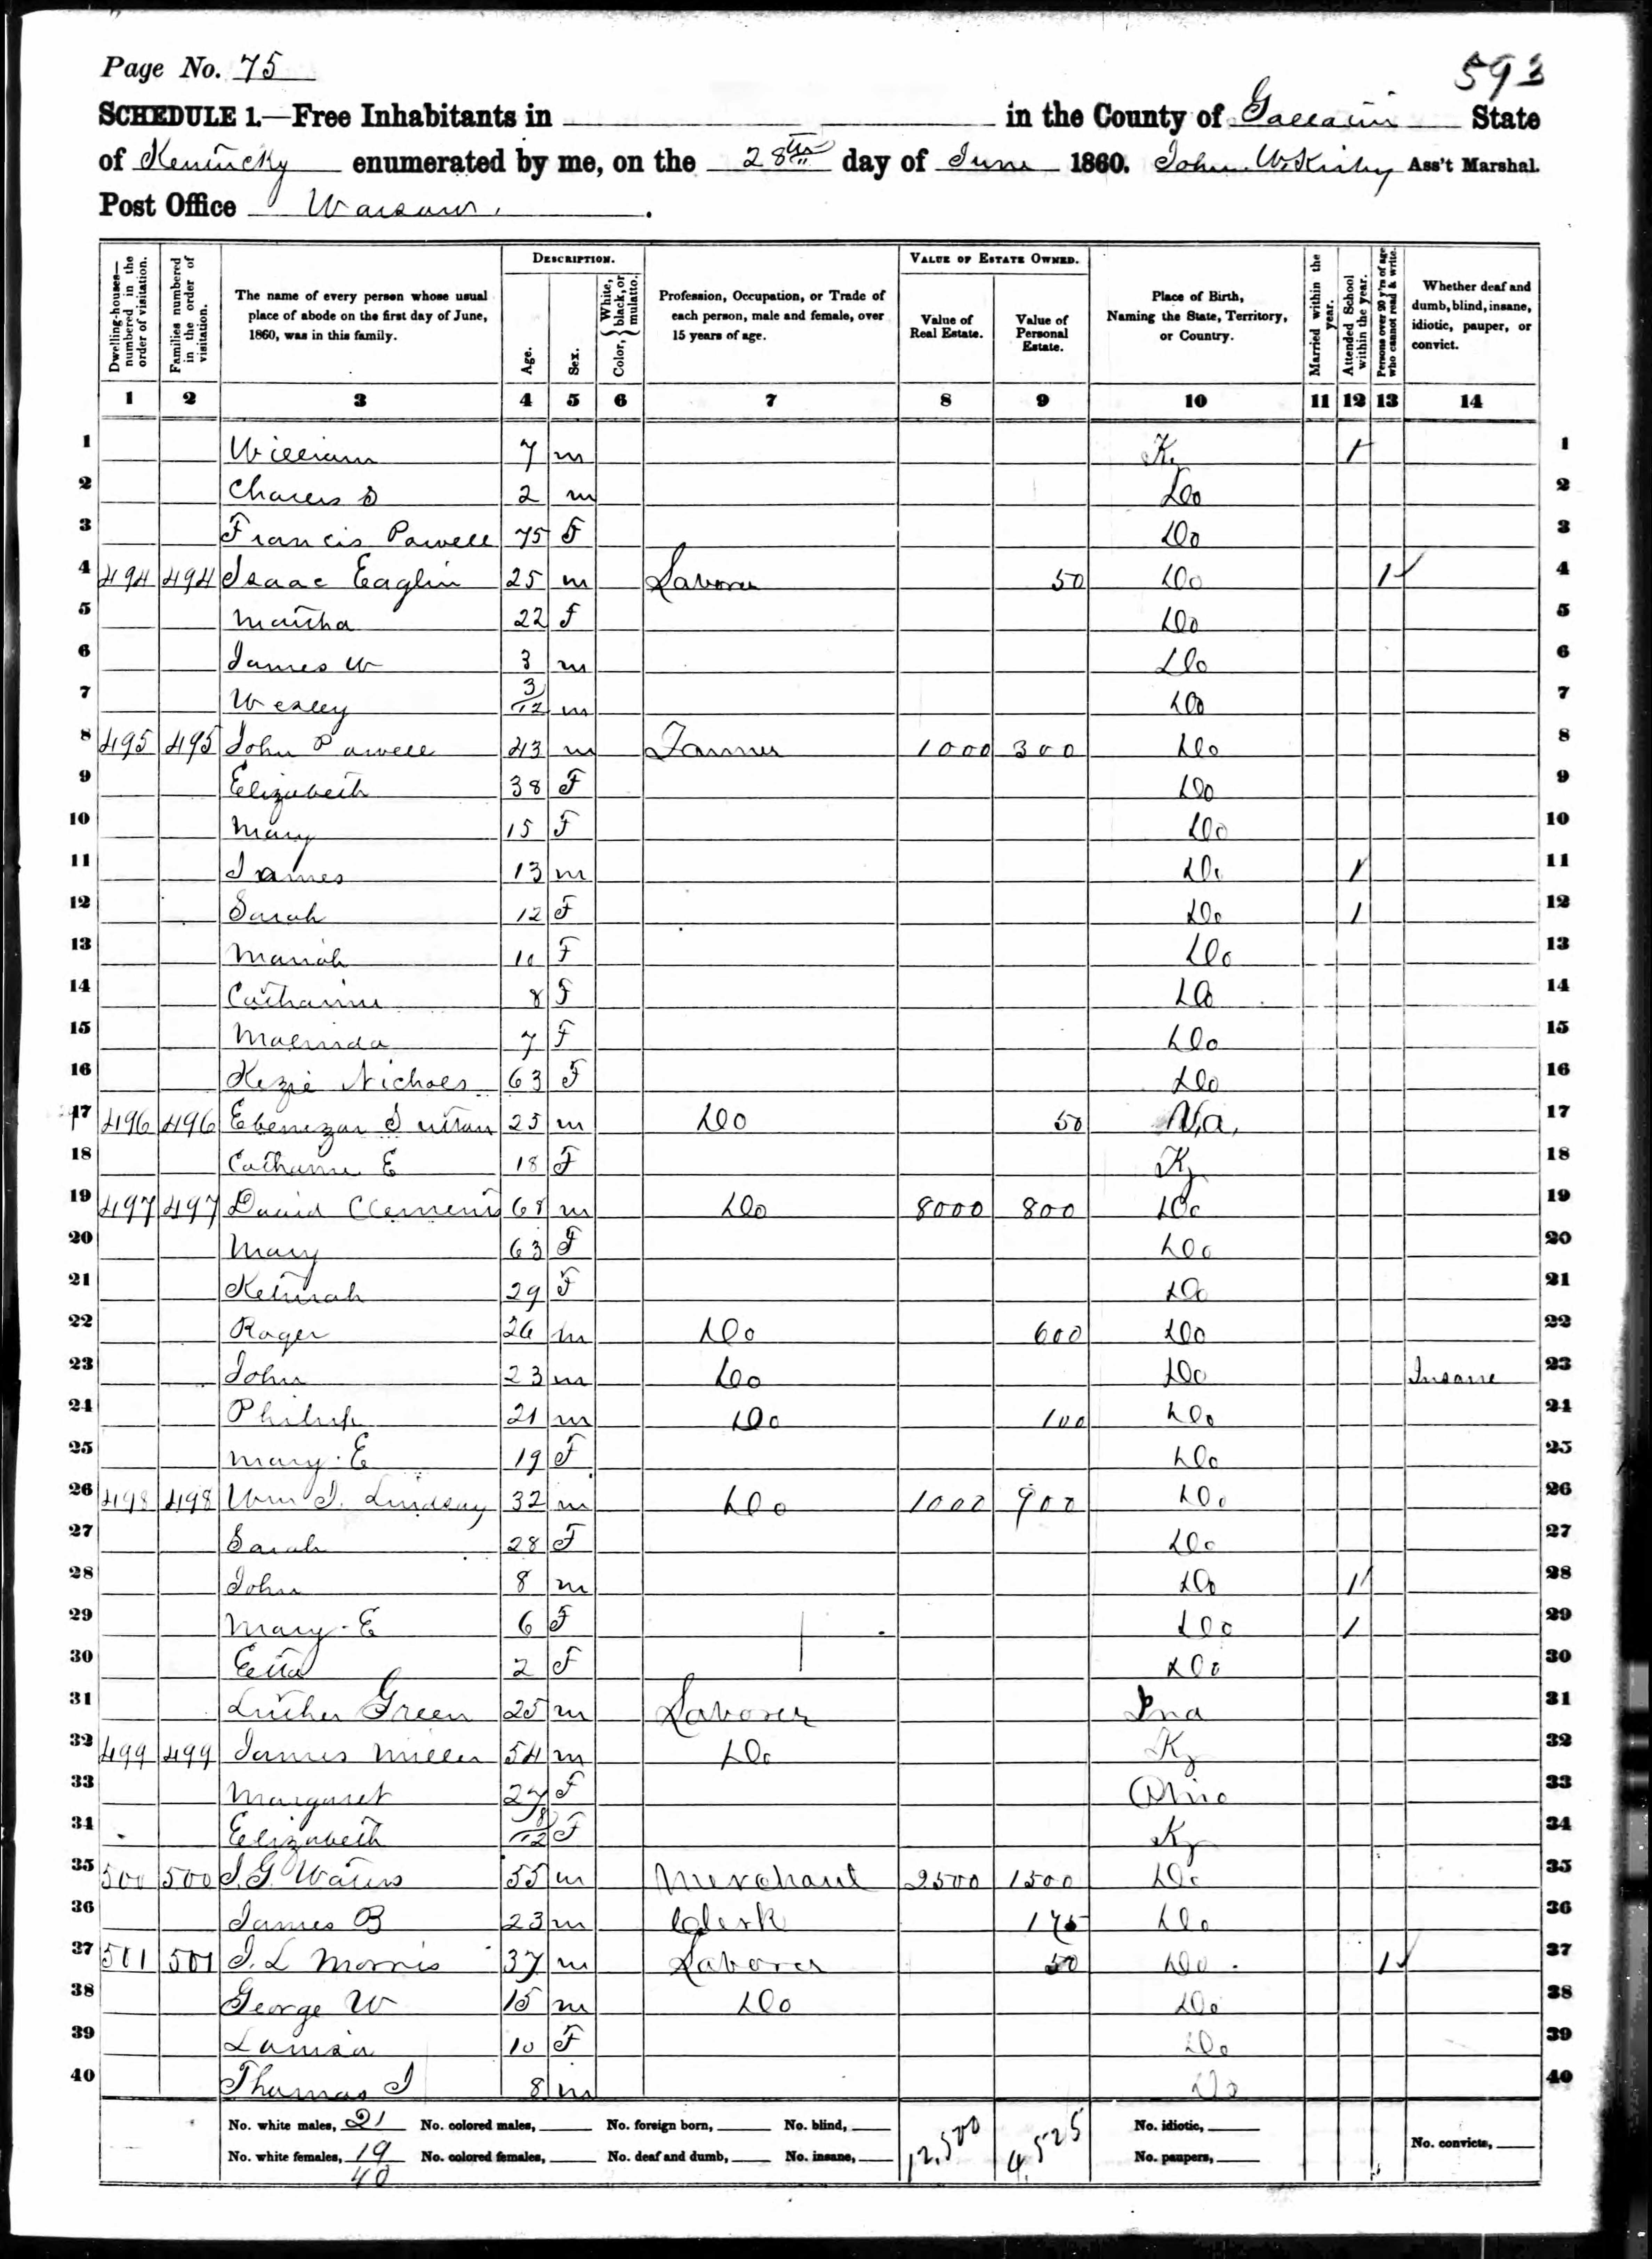 Page No. 75
593
SCHEDULE 1.—Free Inhabitants in in the County of Gallatin State
of Kentucky enumerated by me, on the 28th day of June 1860. John W. Kirby Ass't Marshal.
Post Office Warsaw.
Dwelling-houses—numbered in the order of visitation.
Families numbered in the order of visitation.
The name of every person whose usual place of abode on the first day of June, 1860, was in this family.
DESCRIPTION.
Age.
Sex.
Color, { White, black, or mulatto.
Profession, Occupation, or Trade of each person, male and female, over 15 years of age.
VALUE OF ESTATE OWNED.
Value of Real Estate.
Value of Personal Estate.
Place of Birth, Naming the State, Territory, or Country.
Married within the year.
Attended School within the year.
Persons over 20 y'rs of age who cannot read & write.
Whether deaf and dumb, blind, insane, idiotic, pauper, or convict.
1 2 3 4 5 6 7 8 9 10 11 12 13 14
1 William 7 m Ky 1 1
2 Charles D 2 m Do 2
3 Francis Powell 75 F Do 3
4 494 494 Isaac Eaglin 25 m Laborer 50 Do 1 4
5 Martha 22 F Do 5
6 James W 3 m Do 6
7 Wesley 3/12 m Do 7
8 495 495 John Powell 43 m Farmer 1000 300 Do 8
9 Elizabeth 38 F Do 9
10 Mary 15 F Do 10
11 James 13 m Do 1 11
12 Sarah 12 F Do 1 12
13 Mariah 10 F Do 13
14 Catharine 8 F Do 14
15 Malinda 7 F Do 15
16 Kezie Nichols 63 F Do 16
17 496 496 Ebenezar Sutton 25 m Do 50 Va. 17
18 Catharine E 18 F Ky 18
19 497 497 David Clements 68 m Do 8000 800 Do 19
20 Mary 63 F Do 20
21 Keturah 29 F Do 21
22 Roger 26 m Do 600 Do 22
23 John 23 m Do Do Insane 23
24 Philip 21 m Do 100 Do 24
25 Mary E 19 F Do 25
26 498 498 Wm J. Lindsay 32 m Do 1000 900 Do 26
27 Sarah 28 F Do 27
28 John 8 m Do 1 28
29 Mary E 6 F Do 1 29
30 Etta 2 F Do 30
31 Luther Green 25 m Laborer Ina 31
32 499 499 James Miller 54 m Do Ky 32
33 Margaret 27 F Ohio 33
34 Elizabeth 8/12 F Ky 34
35 500 500 J. G. Waters 55 m Merchant 2500 1500 Do 35
36 James B 23 m Clerk 175 Do 36
37 501 501 J. L Morris 37 m Laborer 50 Do 1 37
38 George W 15 m Do Do 38
39 Louisa 10 F Do 39
40 Thomas J 8 m Do 40
No. white males, 21 No. colored males, No. foreign born, No. blind, 12,500 4,525 No. idiotic,
No. white females, 19 No. colored females, No. deaf and dumb, No. insane, No. paupers, No. convicts,
40